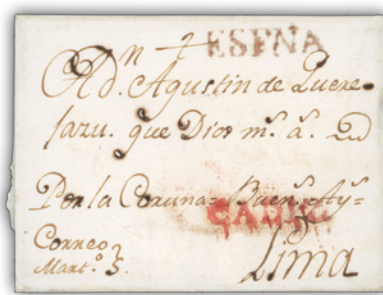 ESPNA
A d.ⁿ Agustin de Quere-
jazu. que Dios m.ˢ a.ˢ
Por la Coruna= Buen.ˢ Ay.ˢ=
CADIZ
Correo
Mart.º 3
Lima